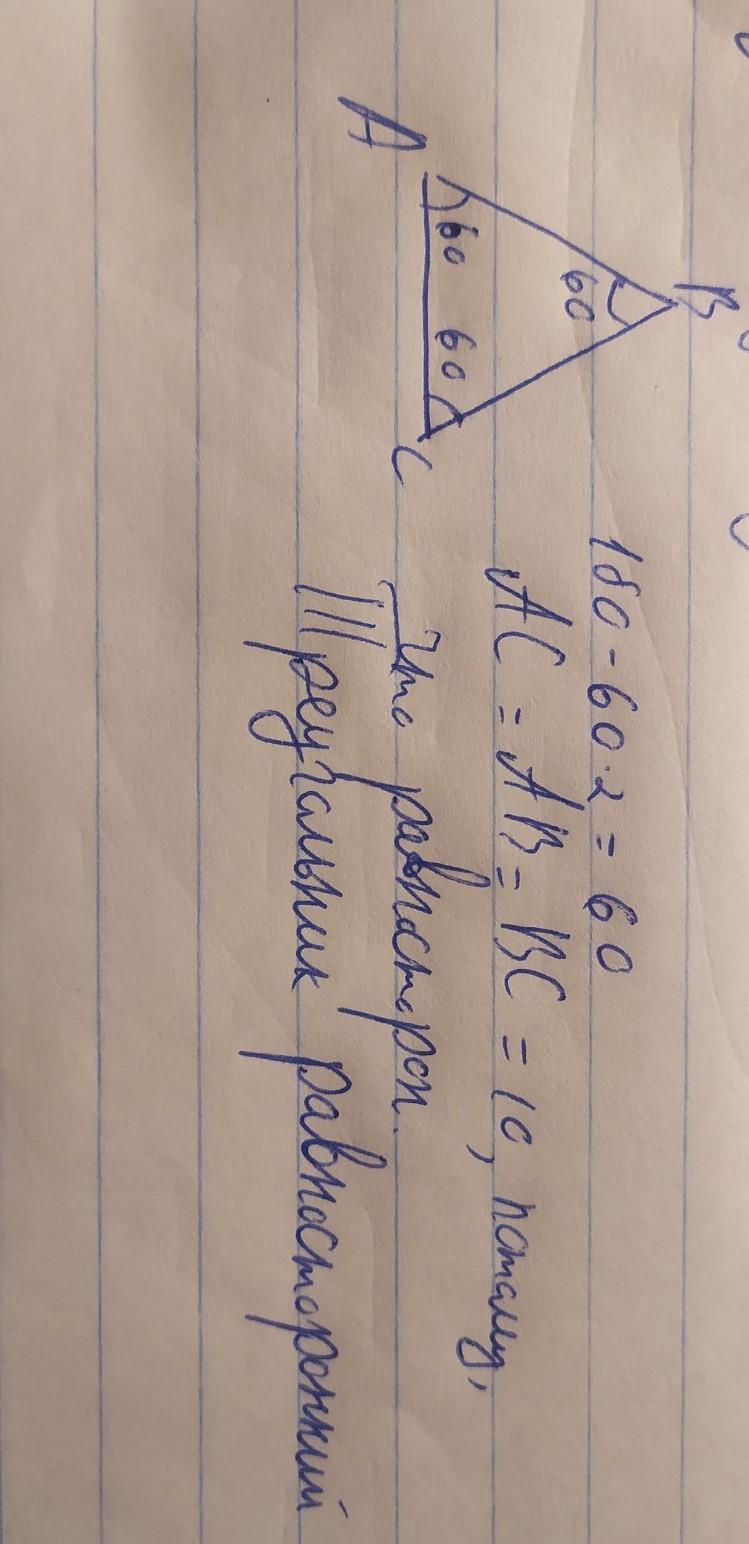 B
60
A
60 60
C
180-60·2=60
AC=AB=BC=10, потаму,
что равносторон.
Треугальник равносторонний